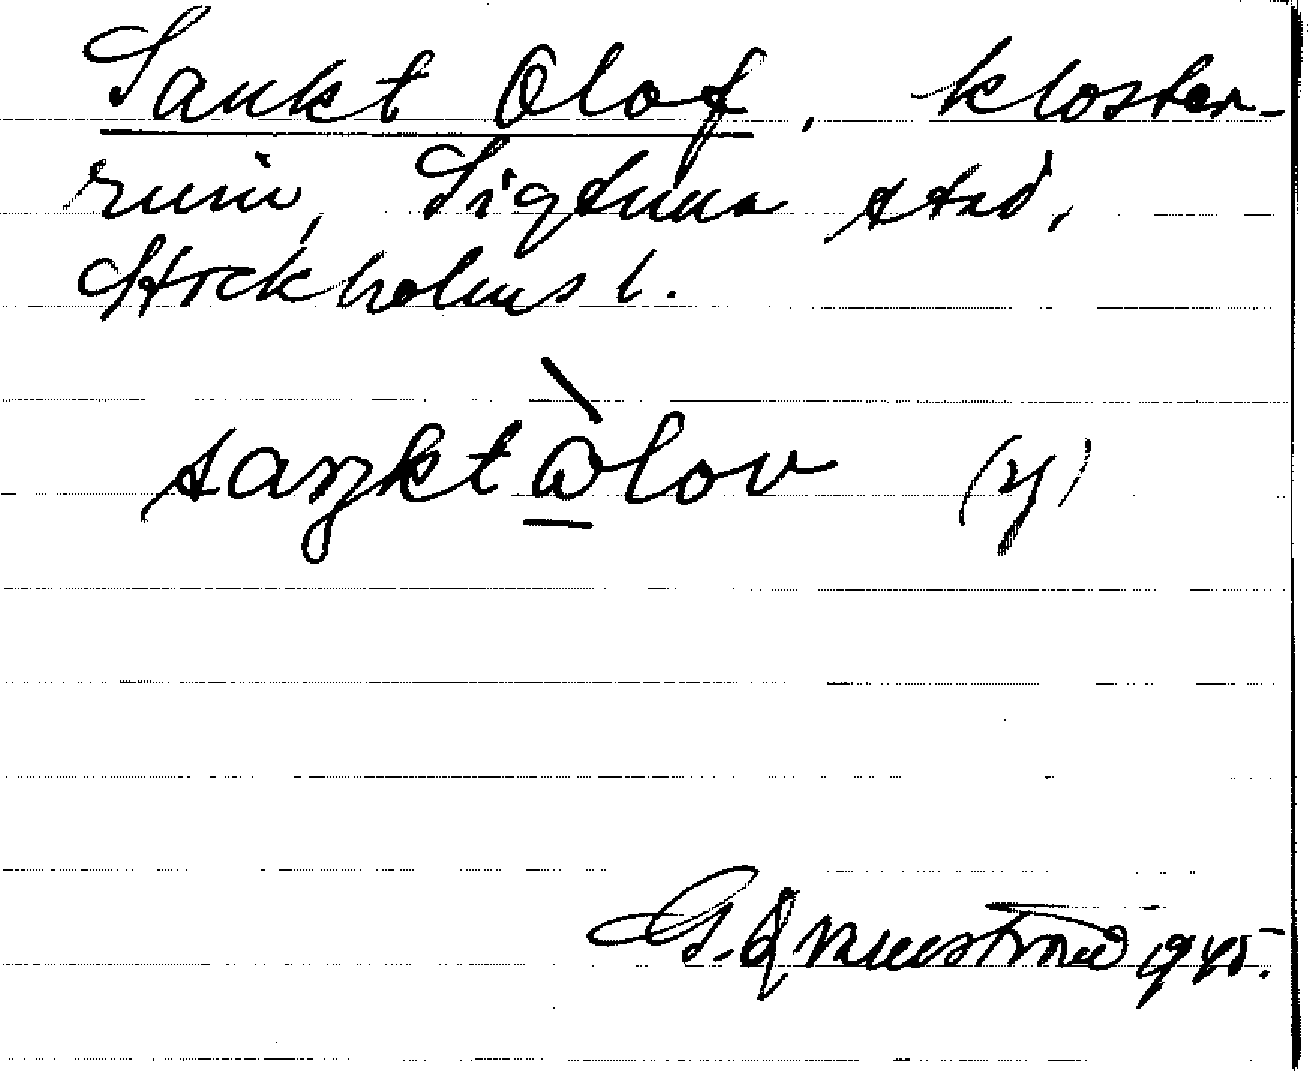 Sankt Olof, kloster-
ruin, Sigtuna stad,
Stockholms l.
saŋkt òlov (y)
1945.